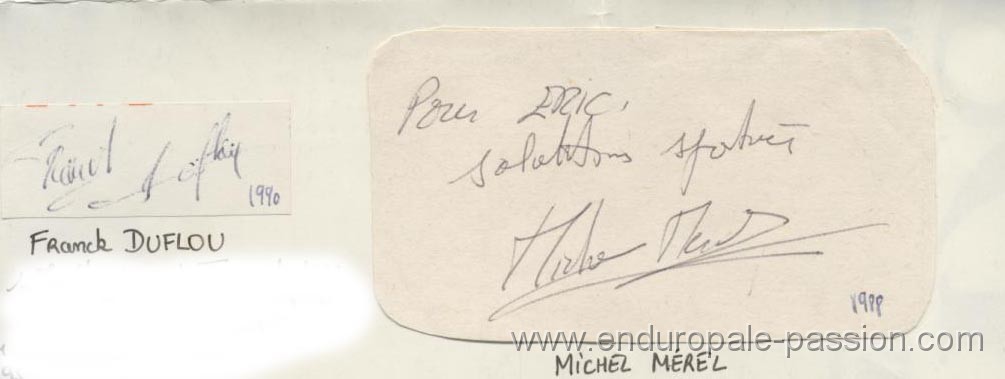 Franck Duflou
1990
Franck DUFLOU
Pour ERIC.
salutations sportives
Michel Merel
1988
www.enduropale-passion.com
MICHEL MÉREL